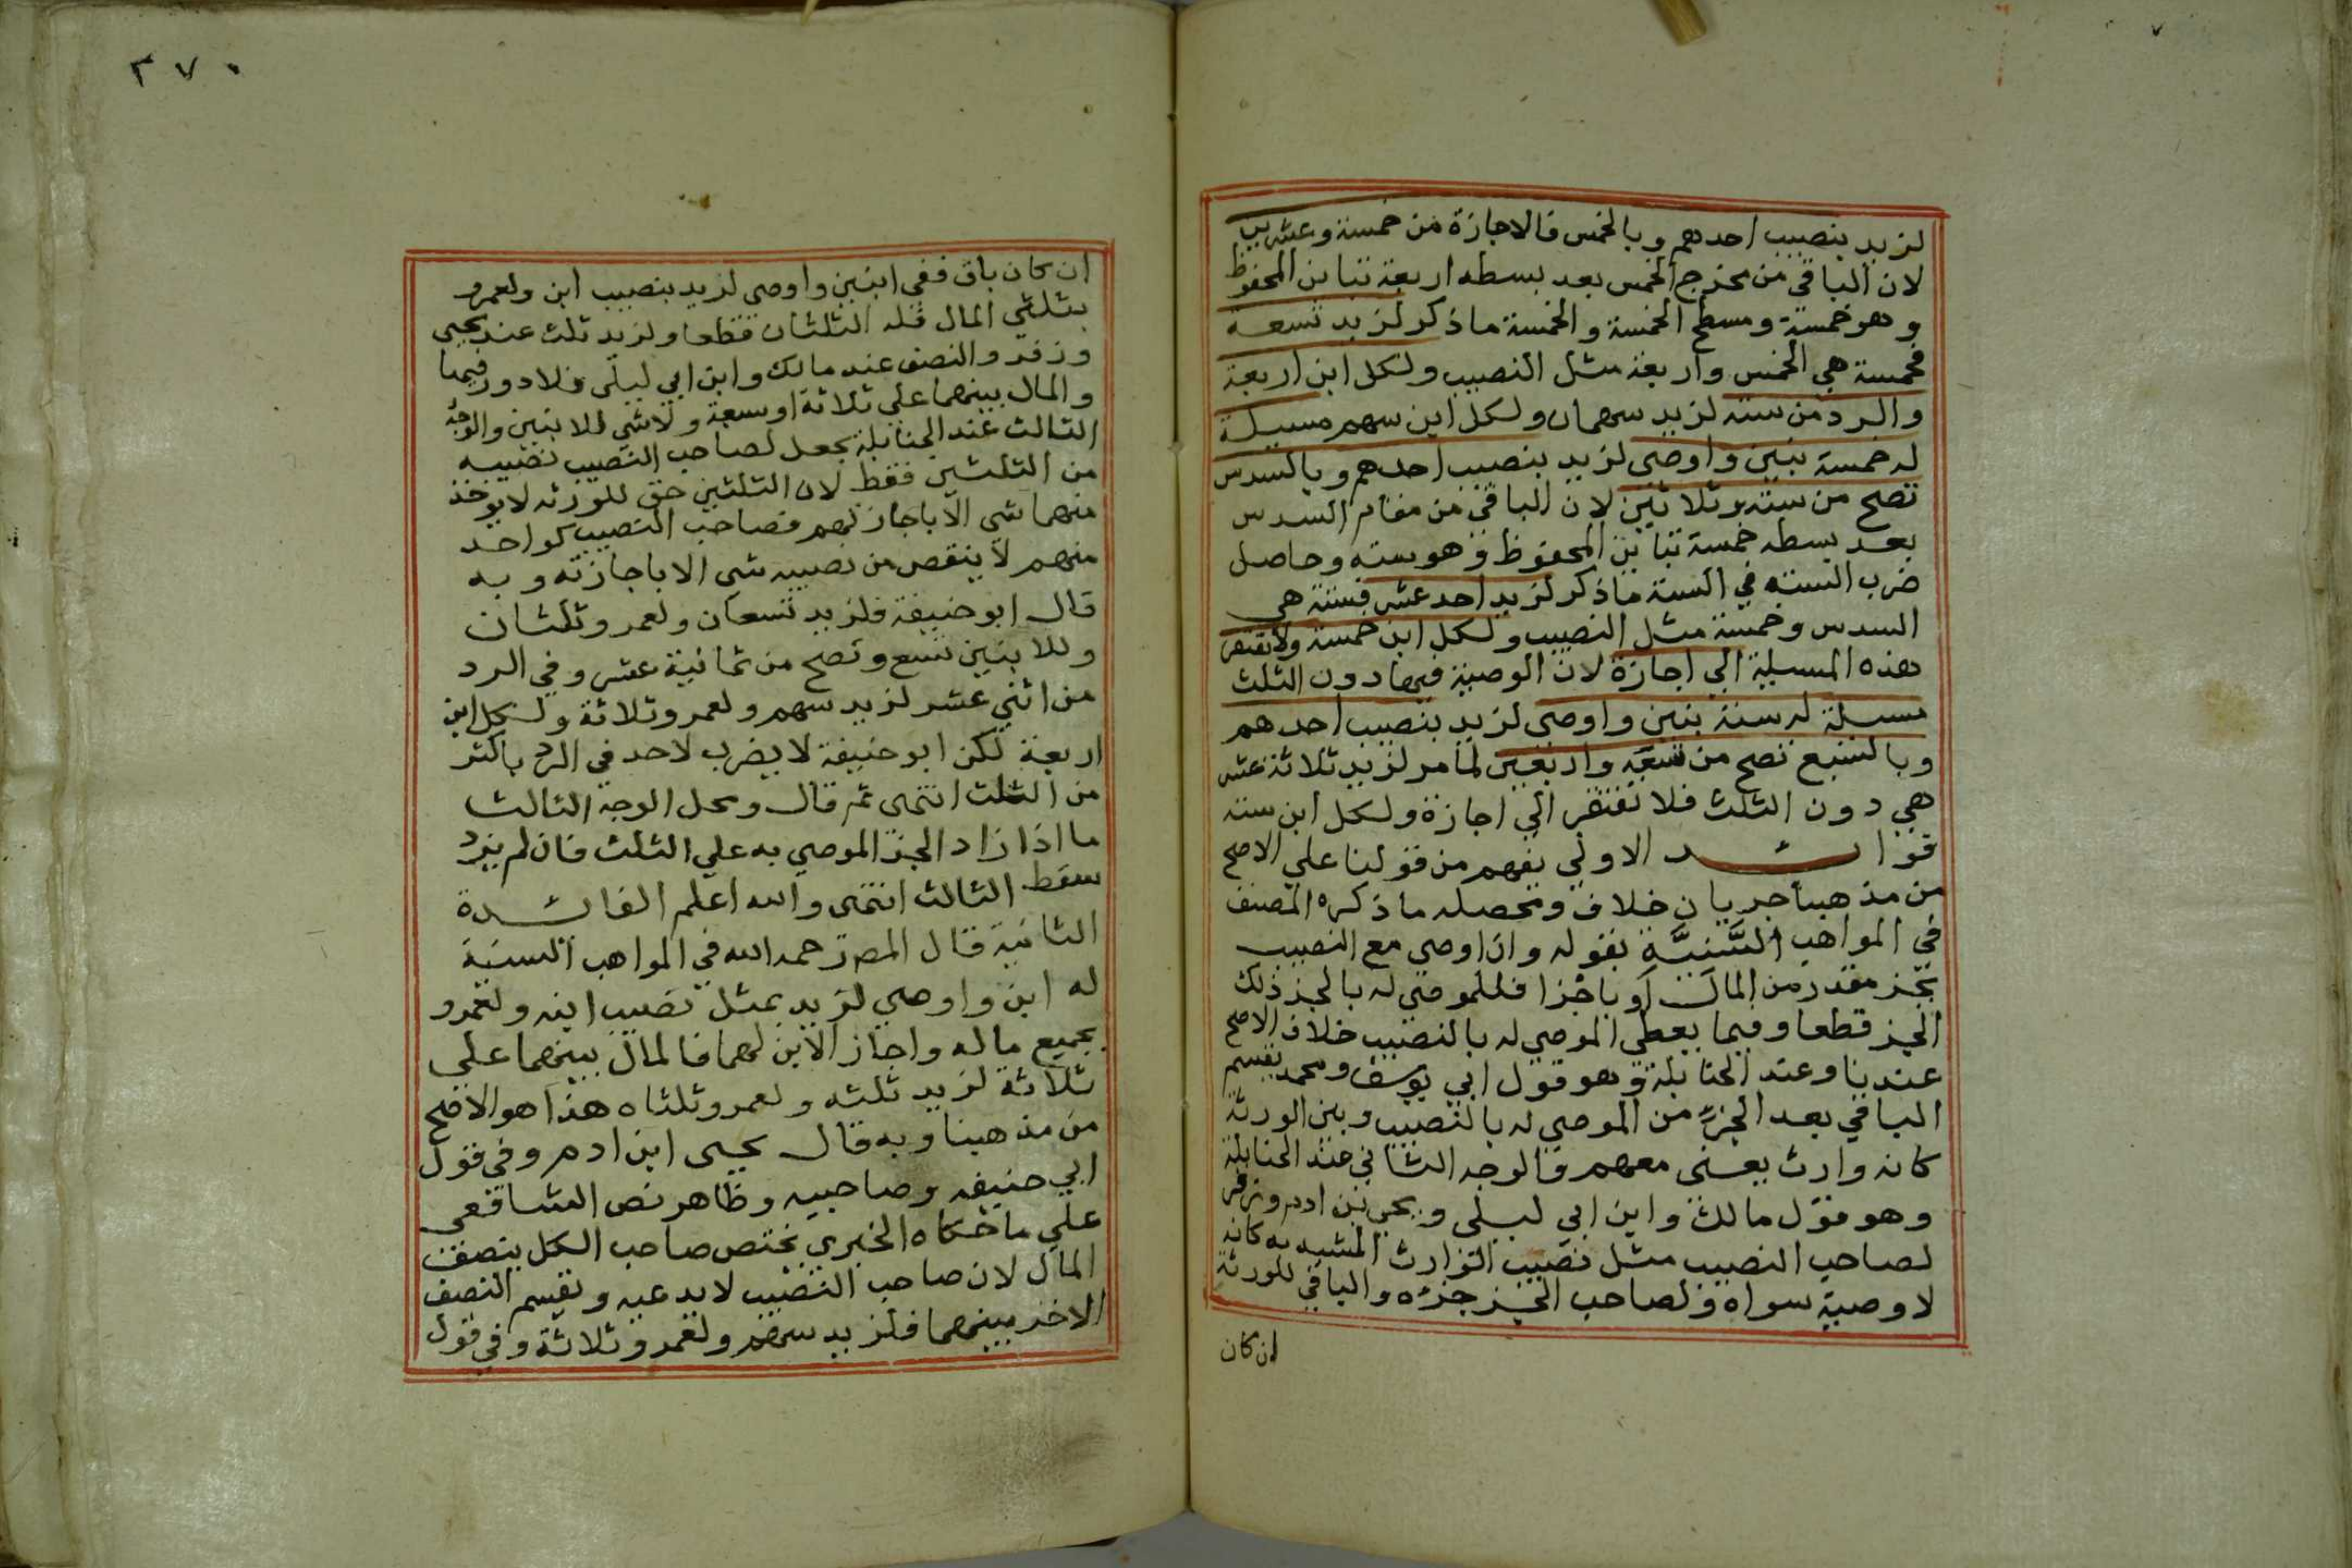 لزيد بنصيب احدهم وبالخمس فالاجازة من خمسة وعشرين
لان الباقي من مخرج الخمس بعد بسطه اربعة تباين المحفوظ
وهو خمسة ومسطح الخمسة والخمسة ما ذكر لزيد تسعة
فخمسة هي الخمس واربعة مثل النصيب ولكل ابن اربعة
والرد من ستة لزيد سهمان ولكل ابن سهم مسيلة
له خمسة بنين واوصى لزيد بنصيب احدهم وبالسدس
تصح من ستة وثلاثين لان الباقي من مقام السدس
بعد بسطه خمسة تباين المحفوظ وهو ستة وحاصل
ضرب الستة في الستة ما ذكر لزيد احد عشر فستة هي
السدس وخمسة مثل النصيب ولكل ابن خمسة ولا تفتقر
هذه المسيلة الي اجازة لان الوصية فيها دون الثلث
مسيلة له ستة بنين واوصى لزيد بنصيب احدهم
وبالسبع تصح من تسعة واربعين لما مر لزيد ثلاثة عشر
هي دون الثلث فلا تفتقر الي اجازة ولكل ابن ستة
فوائد الاولي يفهم من قولنا علي الاصح
من مذهبنا جريان خلاف ومحصله ما ذكره المصنف
في المواهب السَّنيَّة بقوله وان اوصي مع النصيب
بجز مقدر من المال او باجزا فللموصي له بالجز ذلك
الجز قطعا وفيما يعطي الموصي له بالنصيب خلاف الاصح
عندنا وعند الحنابلة وهو قول ابي يوسف ومحمد يقسم
الباقي بعد الجزء من الموصي له بالنصيب وبين الورثة
كانه وارث يعني معهم فالوجه الثاني عند الحنابلة
وهو قول مالك وابن ابي ليلى ويحيى بن ادم وزفر
لصاحب النصيب مثل نصيب الوارث المشبه به كانه
لا وصية سواه ولصاحب الجز جزءه والباقي للورثة
ان كان
٣٧٠
ان كان باق ففي ابنين واوصي لزيد بنصيب ابن ولعمرو
بثلثي المال فله الثلثان قطعا ولزيد ثلث عند يحيى
وزفر والنصف عند مالك وابن ابي ليلي فلا دور فيها
والمال بينهما علي ثلاثة او سبعة ولا شي للابنين والوجه
الثالث عند الحنابلة يجعل لصاحب النصيب نصيبه
من الثلثين فقط لان الثلثين حق للورثه لا يوخذ
منهما شي الا باجازتهم فصاحب النصيب كواحد
منهم لا ينقص من نصيبه شي الا باجازته وبه
قال ابو حنيفة فلزيد تسعان ولعمرو ثلثان
وللابنين تسع وتصح من ثمانية عشر وفي الرد
من اثني عشر لزيد سهم ولعمرو ثلاثة ولكل ابن
اربعة لكن ابو حنيفة لا يضرب لاحد في الرد باكثر
من الثلث انتهى ثم قال ومحل الوجه الثالث
ما اذا زاد الجز الموصي به علي الثلث فان لم يزد
سقط الثالث انتهى والله اعلم الفائدة
الثانية قال المص رحمه الله في المواهب السنية
له ابن واوصي لزيد بمثل نصيب ابنه ولعمرو
بجميع ماله واجاز الابن لهما فالمال بينهما علي
ثلاثة لزيد ثلثه ولعمرو ثلثاه هذا هو الاصح
من مذهبنا وبه قال يحيى ابن ادم وفي قول
ابي حنيفه وصاحبيه وظاهر نص الشافعى
علي ما حكاه الخبري يختص صاحب الكل بنصف
المال لان صاحب النصيب لا يدعيه ويقسم النصف
الاخر بينهما فلزيد سهم ولعمرو ثلاثة وفي قول